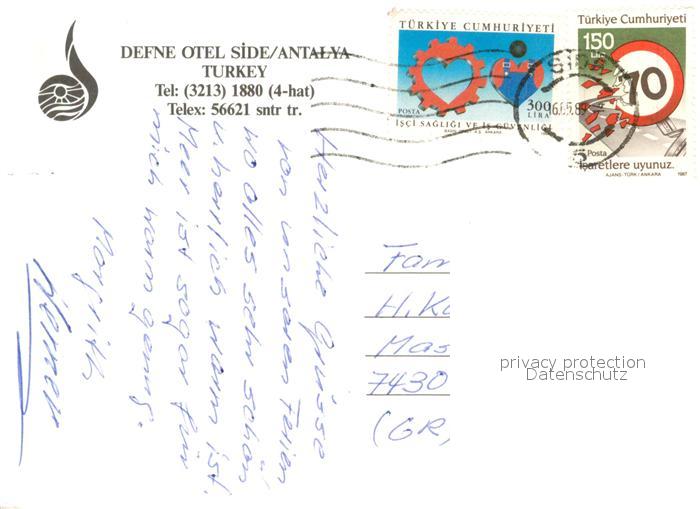 DEFNE OTEL SİDE/ANTALYA
TURKEY
Tel: (3213) 1880 (4-hat)
Telex: 56621 sntr tr.
TÜRKİYE CUMHURİYETİ
POSTA
300
LİRA
İŞÇİ SAĞLIĞI VE İŞ GÜVENLİĞİ
Türkiye Cumhuriyeti
150
Lira
70
Posta
İşaretlere uyunuz.
AJANS-TÜRK/ANKARA
1987
Herzliche Grüsse
von unseren Ferien
wo alles sehr schön
u. herrlich warm ist.
Meer ist sogar für
mich warm genug.
Margrith
Werner
Fam
H. Ka
Mas
7430
(GR)
privacy protection
Datenschutz